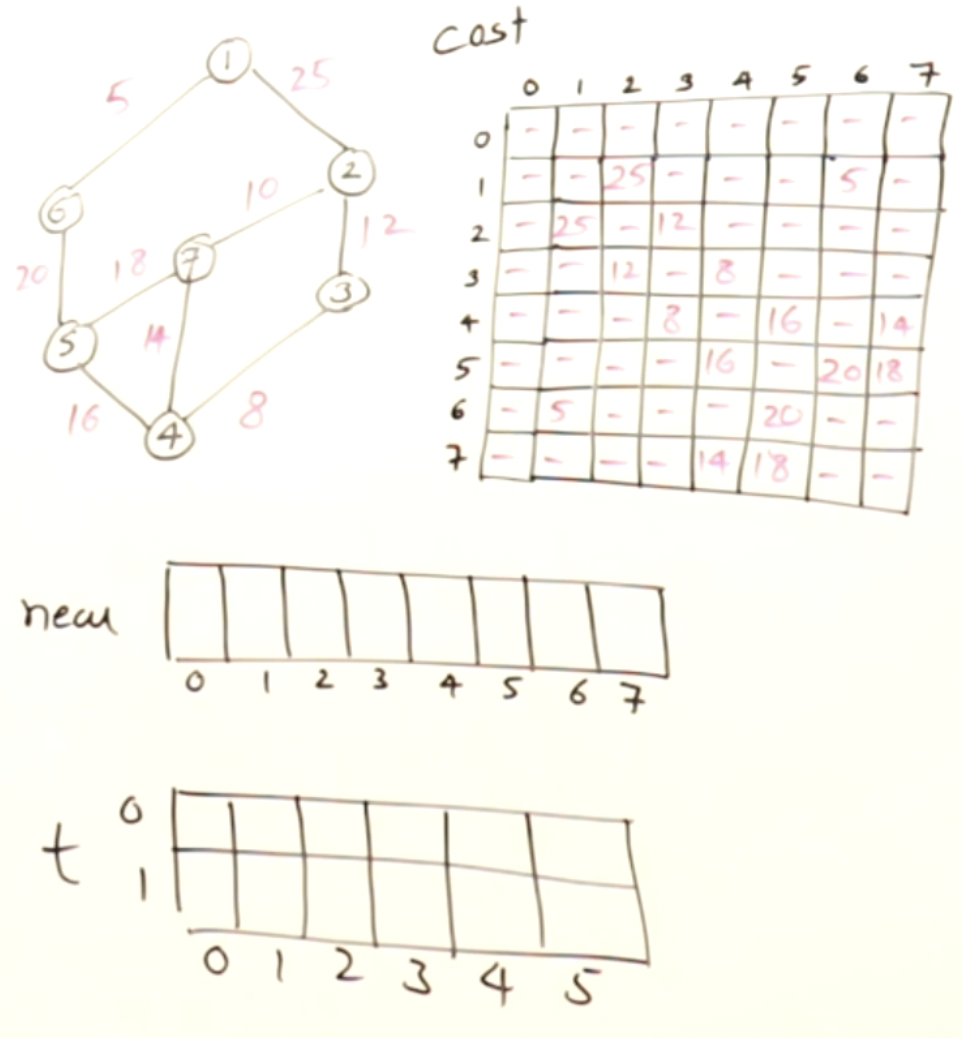 1
5 25
2
10
6 12
20 18 7
3
5 14
16 4 8
cost
0 1 2 3 4 5 6 7
0 - - - - - - - -
1 - - 25 - - - 5 -
2 - 25 - 12 - - - -
3 - - 12 - 8 - - -
4 - - - 8 - 16 - 14
5 - - - - 16 - 20 18
6 - 5 - - - 20 - -
7 - - - - 14 18 - -
near
0 1 2 3 4 5 6 7
t
0
1
0 1 2 3 4 5